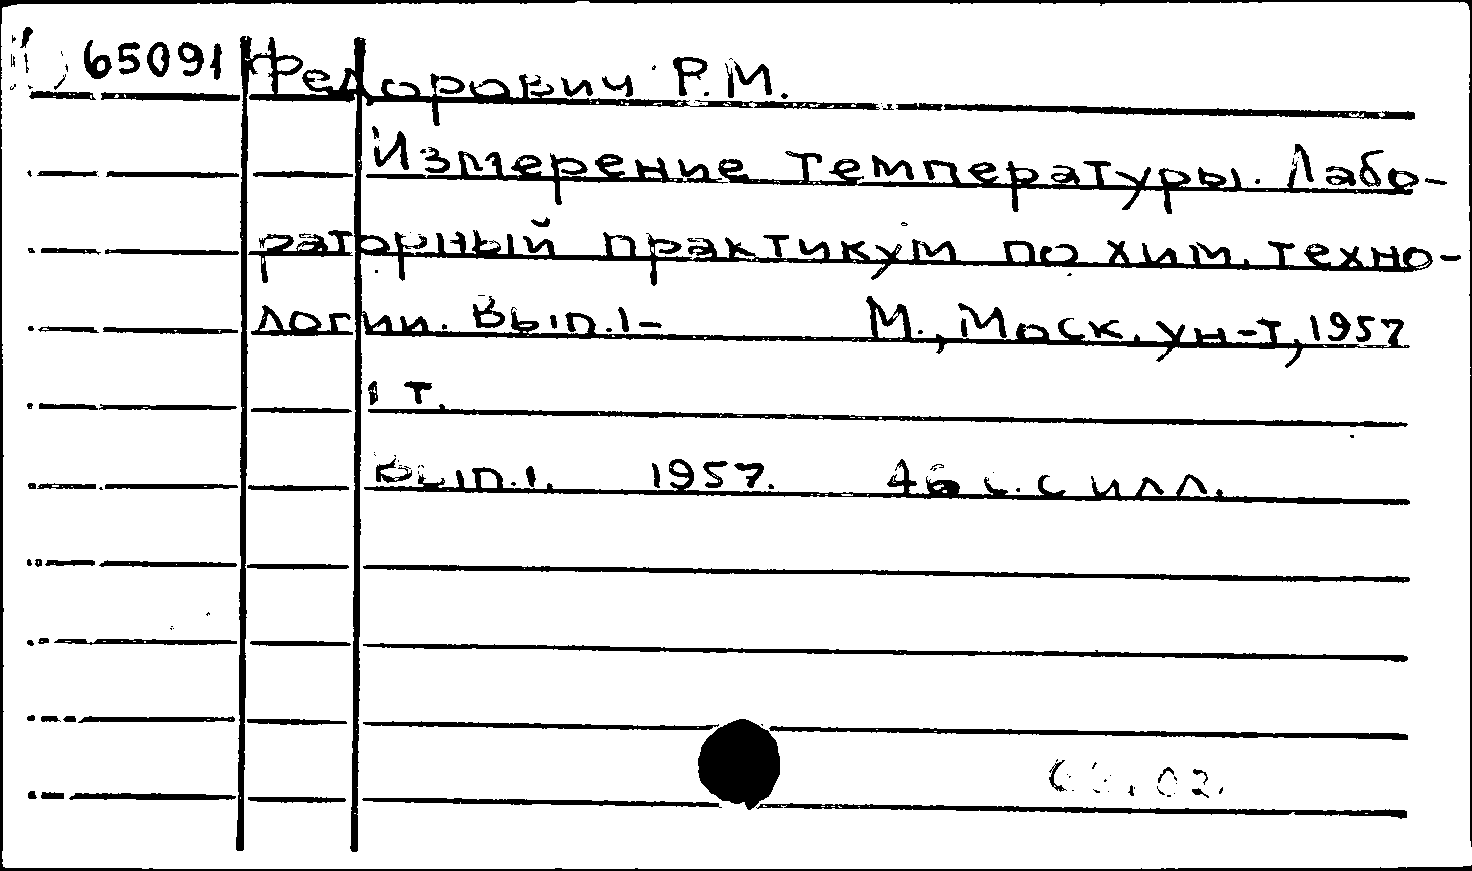 65091 Федорович Р.М.
Измерение температуры. Лабо-
раторный практикум по хим. техно-
логии. Вып.1- М., Моск. ун-т, 1957
1 т.
Вып.1. 1957. 46 с. с илл.